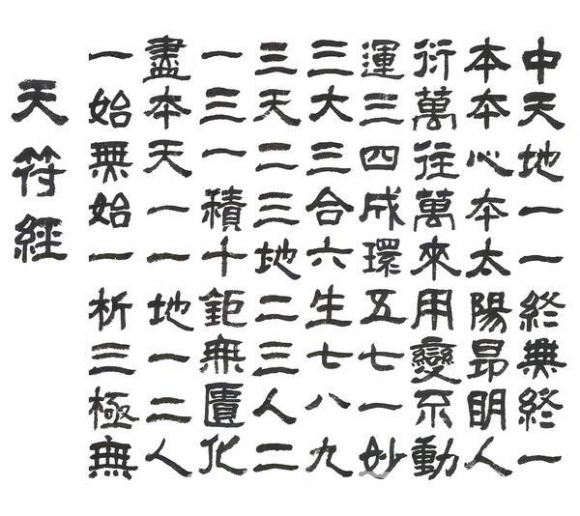 天符經
一始無始一析三極無
盡本天一一地一二人
一三一積十鉅無匱化
三天二三地二三人二
三大三合六生七八九
運三四成環五七一妙
衍萬往萬來用變不動
本本心本太陽昂明人
中天地一一終無終一